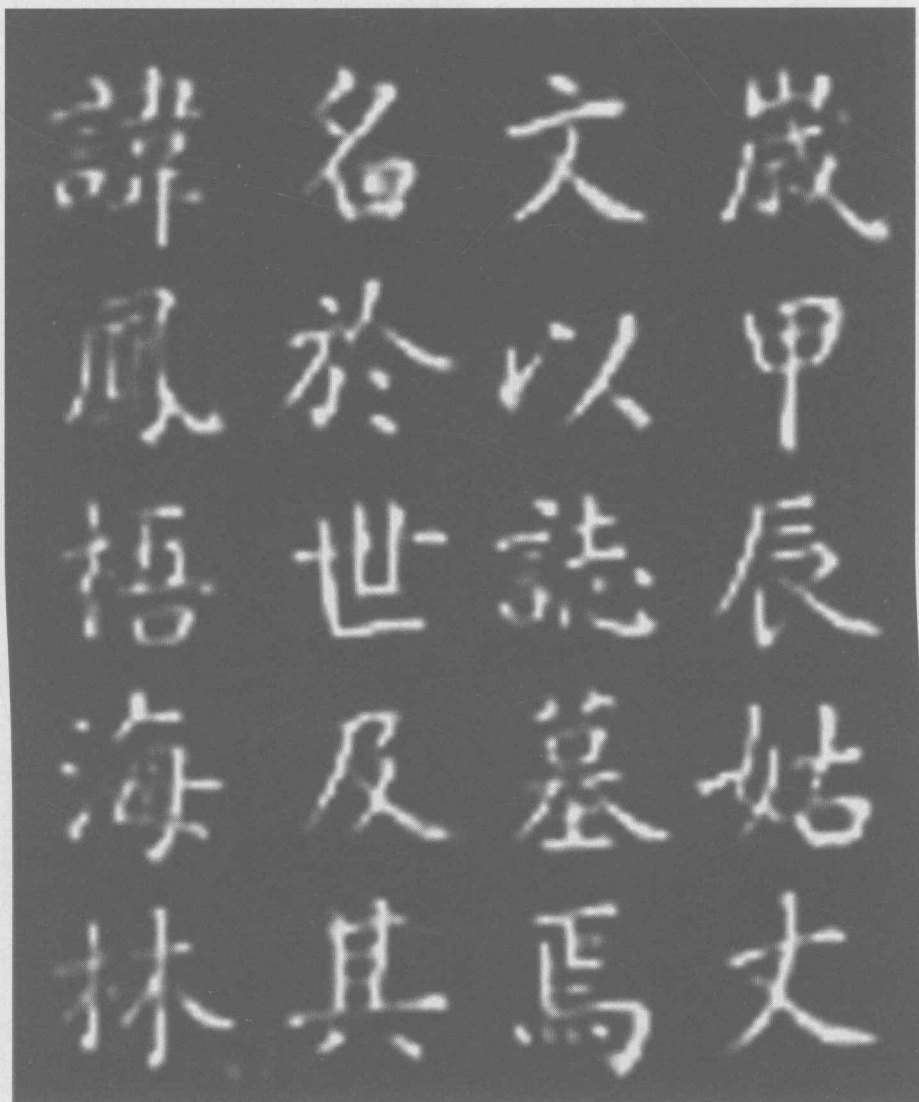 歲甲辰姑丈
文以誌墓焉
名於世及其
諱鳳梧海林